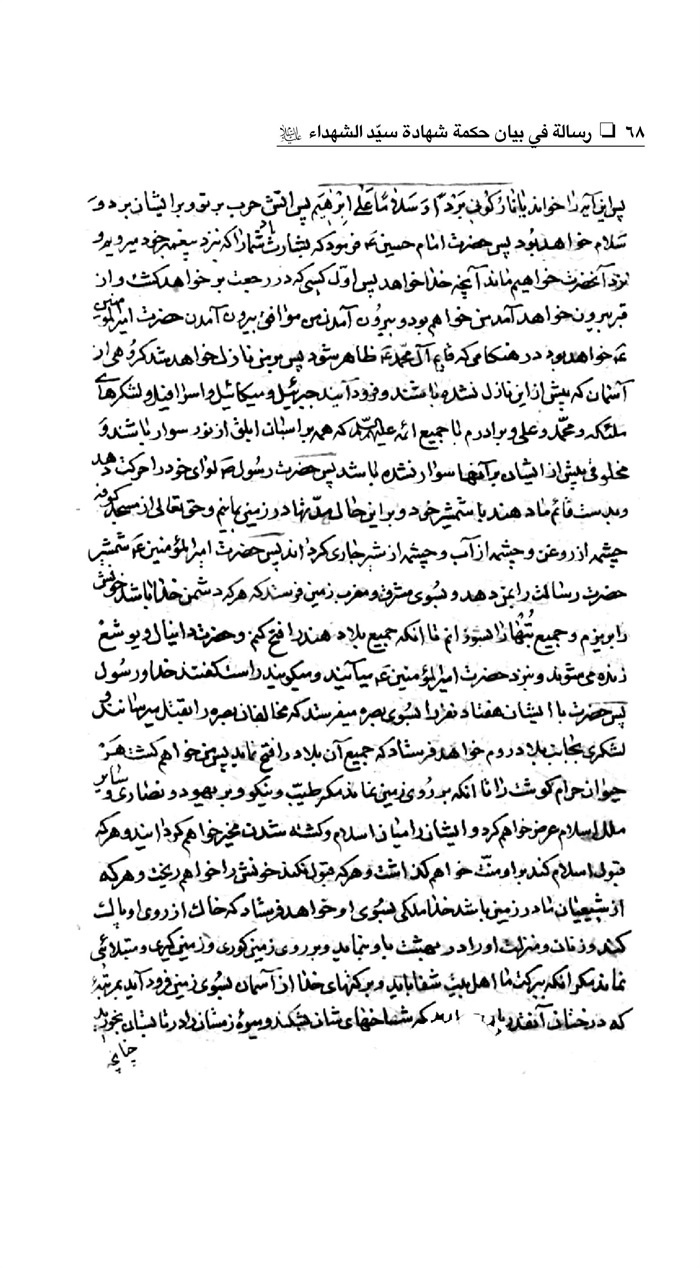 ٦٨ ❏ رسالة في بيان حكمة شهادة سيّد الشهداء عليه السلام
پس این آیه را خواند یا نار کونی بردًا و سلامًا علی ابرهیم پس اتش حرب بر تو و بر ایشان برد و
سلام خواهد بود پس حضرت امام حسین ع فرمود که بشارت باد شما را که نزد پیغمبر خود میرویم و
نزد آنحضرت خواهیم ماند آنچه خدا خواهد پس اوّل کسی که در رجعت بر خواهد کشت و از
قبر بیرون خواهد آمد من خواهم بود و بیرون آمدن من موافق بیرون آمدن حضرت امیرالمؤمنین
ع خواهد بود در هنکامی که قایم آل محمد ع ظاهر شود پس بر من نازل خواهد شد کروهی از
آسمان که پیش از این نازل نشده باشند و فرود آیند جبرئیل و میکائیل و اسرافیل و لشکرهای
ملئکه و محمّد و علی و برادرم با جمیع ائمه علیه السلام که همه بر اسبان ابلق از نور سوار باشند و
مخلوقی پیش از ایشان بر آنها سوار نشده باشد پس حضرت رسول ص لوای خود را حرکت دهد
و بدست قائم ما دهند با شمشیر خود و بر این حال مدّتها در زمین بمانیم و حق تعالی از مسجد کوفه
چشمه از روغن و چشمه از آب و چشمه از شیر جاری کرداند پس حضرت امیرالمؤمنین ع شمشیر
حضرت رسالت را بمن دهد و بسوی مشرق و مغرب زمین فرستد که هر که دشمن خدا باشد خونش
را بریزم و جمیع بتها را بسوزانم تا آنکه جمیع بلاد هند را فتح کنم و حضرت دانیال و یوشع
زنده می شوند و بنزد حضرت امیرالمؤمنین ع میآیند و میکویند راست کفتند خدا و رسول
پس حضرت با ایشان هفتاد نفر را بسوی بصره میفرستد که مخالفان بصره را بقتل میرسانند و
لشکری بجانب بلاد روم خواهد فرستاد که جمیع آن بلاد را فتح نماید پس من خواهم کشت هر
حیوان حرام کوشت را تا انکه بر روی زمین نماند مکر طیّب و نیکو و بر یهود و نصاری و سایر
ملل اسلام عرض خواهم کرد و ایشان را میان اسلام و کشته شدن مخیر خواهم کردانید و هر که
قبول اسلام کند بر او منّت خواهم کذاشت و هر که قبول نکند خونش را خواهم ریخت و هر که
از شیعیان ما در زمین باشد خدا ملکی بسوی او خواهد فرستاد که خاک از روی او پاک
کند و زنان و منزلت او را در بهشت باو بنماید و بر روی زمین کوری و زمین کیری و مبتلائی
نماند مکر انکه ببرکت ما اهل بیت شفا یابد و برکتهای خدا از آسمان بسوی زمین فرود آید بمرتبهٔ
که درختان آنقدر که شاخهای شان بشکند و میوهٔ زمستان را در تابستان بخورند
چنانچه